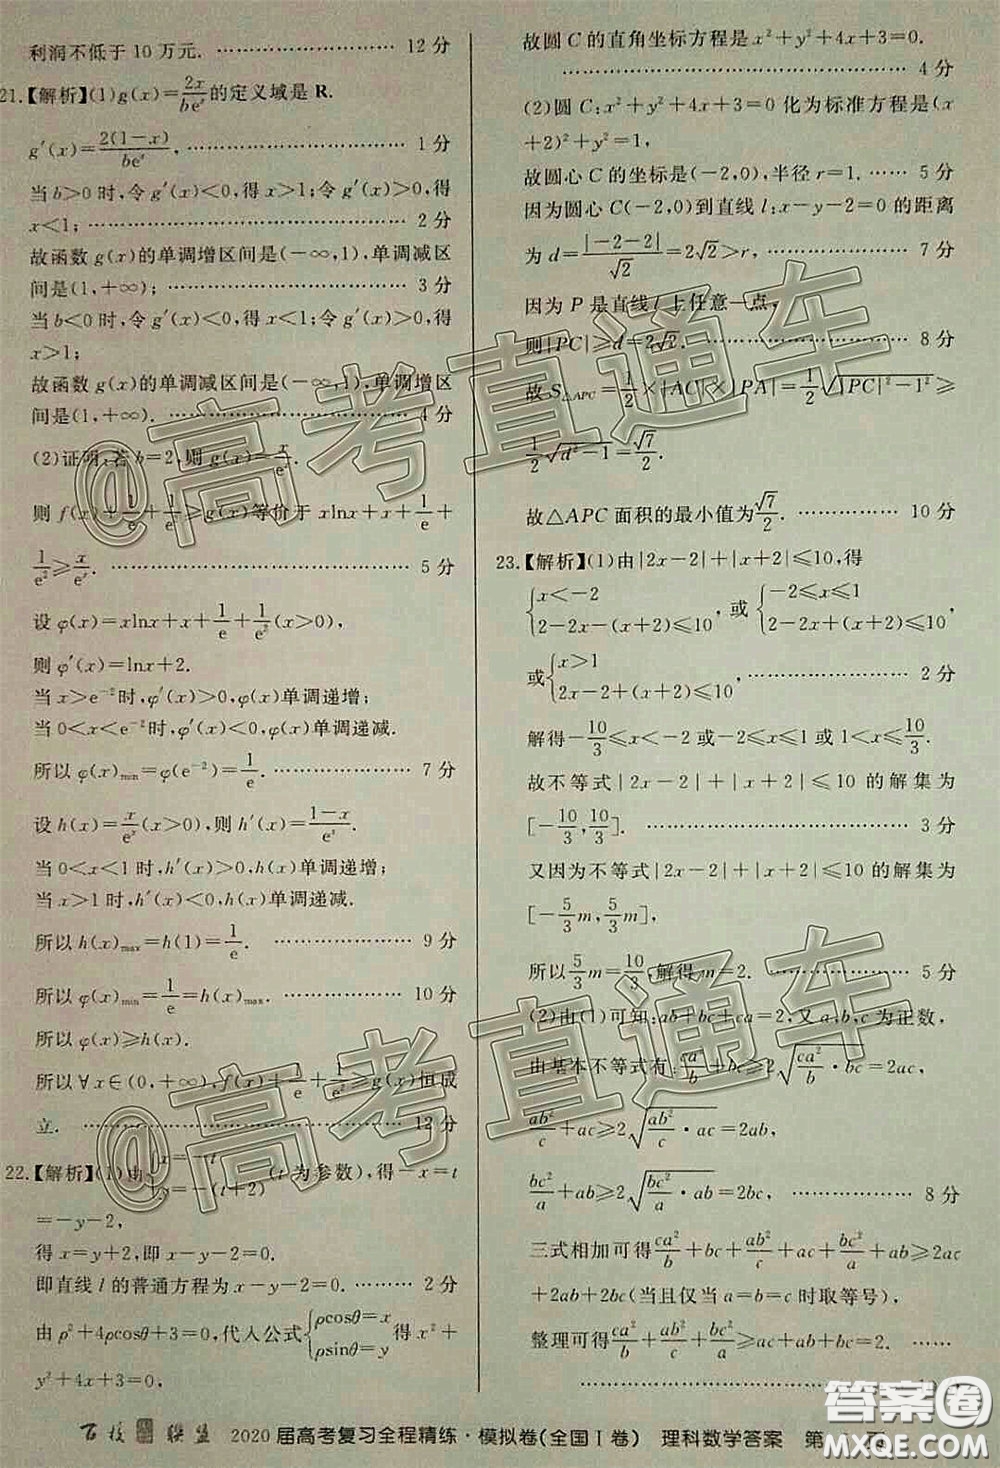 利润不低于10万元. ………………………… 12分
21.【解析】(1)g(x)=2x/be^x的定义域是R.
g′(x)=2(1-x)/be^x, ………………………… 1分
当b>0时,令g′(x)<0,得x>1;令g′(x)>0,得
x<1; ………………………… 2分
故函数g(x)的单调增区间是(-∞,1),单调减区
间是(1,+∞); ………………………… 3分
当b<0时,令g′(x)>0,得x<1;令g′(x)<0,得
x>1;
故函数g(x)的单调减区间是(-∞,1),单调增区
是(1,+∞). ………………………… 4分
(2)证明:若b=2,则g(x)=x/e^x.
则f(x)+1/e+1/e²≥g(x)等价于xlnx+x+1/e+
1/e²≥x/e^x. ………………………… 5分
设φ(x)=xlnx+x+1/e+1/e²(x>0),
则φ′(x)=lnx+2.
当x>e⁻²时,φ′(x)>0,φ(x)单调递增;
当0<x<e⁻²时,φ′(x)<0,φ(x)单调递减.
所以φ(x)min=φ(e⁻²)=1/e. ………………… 7分
设h(x)=x/e^x(x>0),则h′(x)=(1-x)/e^x.
当0<x<1时,h′(x)>0,h(x)单调递增;
当x>1时,h′(x)<0,h(x)单调递减.
所以h(x)max=h(1)=1/e. ………………… 9分
所以φ(x)min=1/e=h(x)max. ………………… 10分
所以φ(x)≥h(x).
所以∀x∈(0,+∞),f(x)+1/e+1/e²≥g(x)恒成
立. ………………………… 12分
22.【解析】(1)由{x=-t y=-(t+2)(t为参数),得-x=t
=-y-2,
得x=y+2,即x-y-2=0.
即直线l的普通方程为x-y-2=0. ………… 2分
由ρ²+4ρcosθ+3=0,代入公式{ρcosθ=x ρsinθ=y得x²+
y²+4x+3=0,
故圆C的直角坐标方程是x²+y²+4x+3=0.
………………………… 4分
(2)圆C:x²+y²+4x+3=0化为标准方程是(x
+2)²+y²=1,
故圆心C的坐标是(-2,0),半径r=1. …… 5分
因为圆心C(-2,0)到直线l:x-y-2=0的距离
为d=|-2-2|/√2=2√2>r, ………………… 7分
因为P是直线l上任意一点,
则|PC|≥d=2√2. ………………… 8分
故S△APC=1/2×|AC|×|PA|=1/2√(|PC|²-1²)≥
1/2√(d²-1)=√7/2.
故△APC面积的最小值为√7/2. …………… 10分
23.【解析】(1)由|2x-2|+|x+2|≤10,得
{x<-2 2-2x-(x+2)≤10,或{-2≤x≤1 2-2x+(x+2)≤10,
或{x>1 2x-2+(x+2)≤10, ………………… 2分
解得-10/3≤x<-2或-2≤x≤1或1<x≤10/3.
故不等式|2x-2|+|x+2|≤10的解集为
[-10/3,10/3]. ………………………… 3分
又因为不等式|2x-2|+|x+2|≤10的解集为
[-5/3m,5/3m],
所以5/3m=10/3,解得m=2. ………………… 5分
(2)由(1)可知:ab+bc+ca=2,又a,b,c为正数,
由基本不等式有:ca²/b+bc≥2√(ca²/b·bc)=2ac,
ab²/c+ac≥2√(ab²/c·ac)=2ab,
bc²/a+ab≥2√(bc²/a·ab)=2bc, ………………… 8分
三式相加可得ca²/b+bc+ab²/c+ac+bc²/a+ab≥2ac
+2ab+2bc(当且仅当a=b=c时取等号),
整理可得ca²/b+ab²/c+bc²/a≥ac+ab+bc=2.
百校联盟 2020届高考复习全程精练·模拟卷(全国Ⅰ卷) 理科数学答案 第
@高考直通车
@高考直通车
答案圈
MXQE.COM